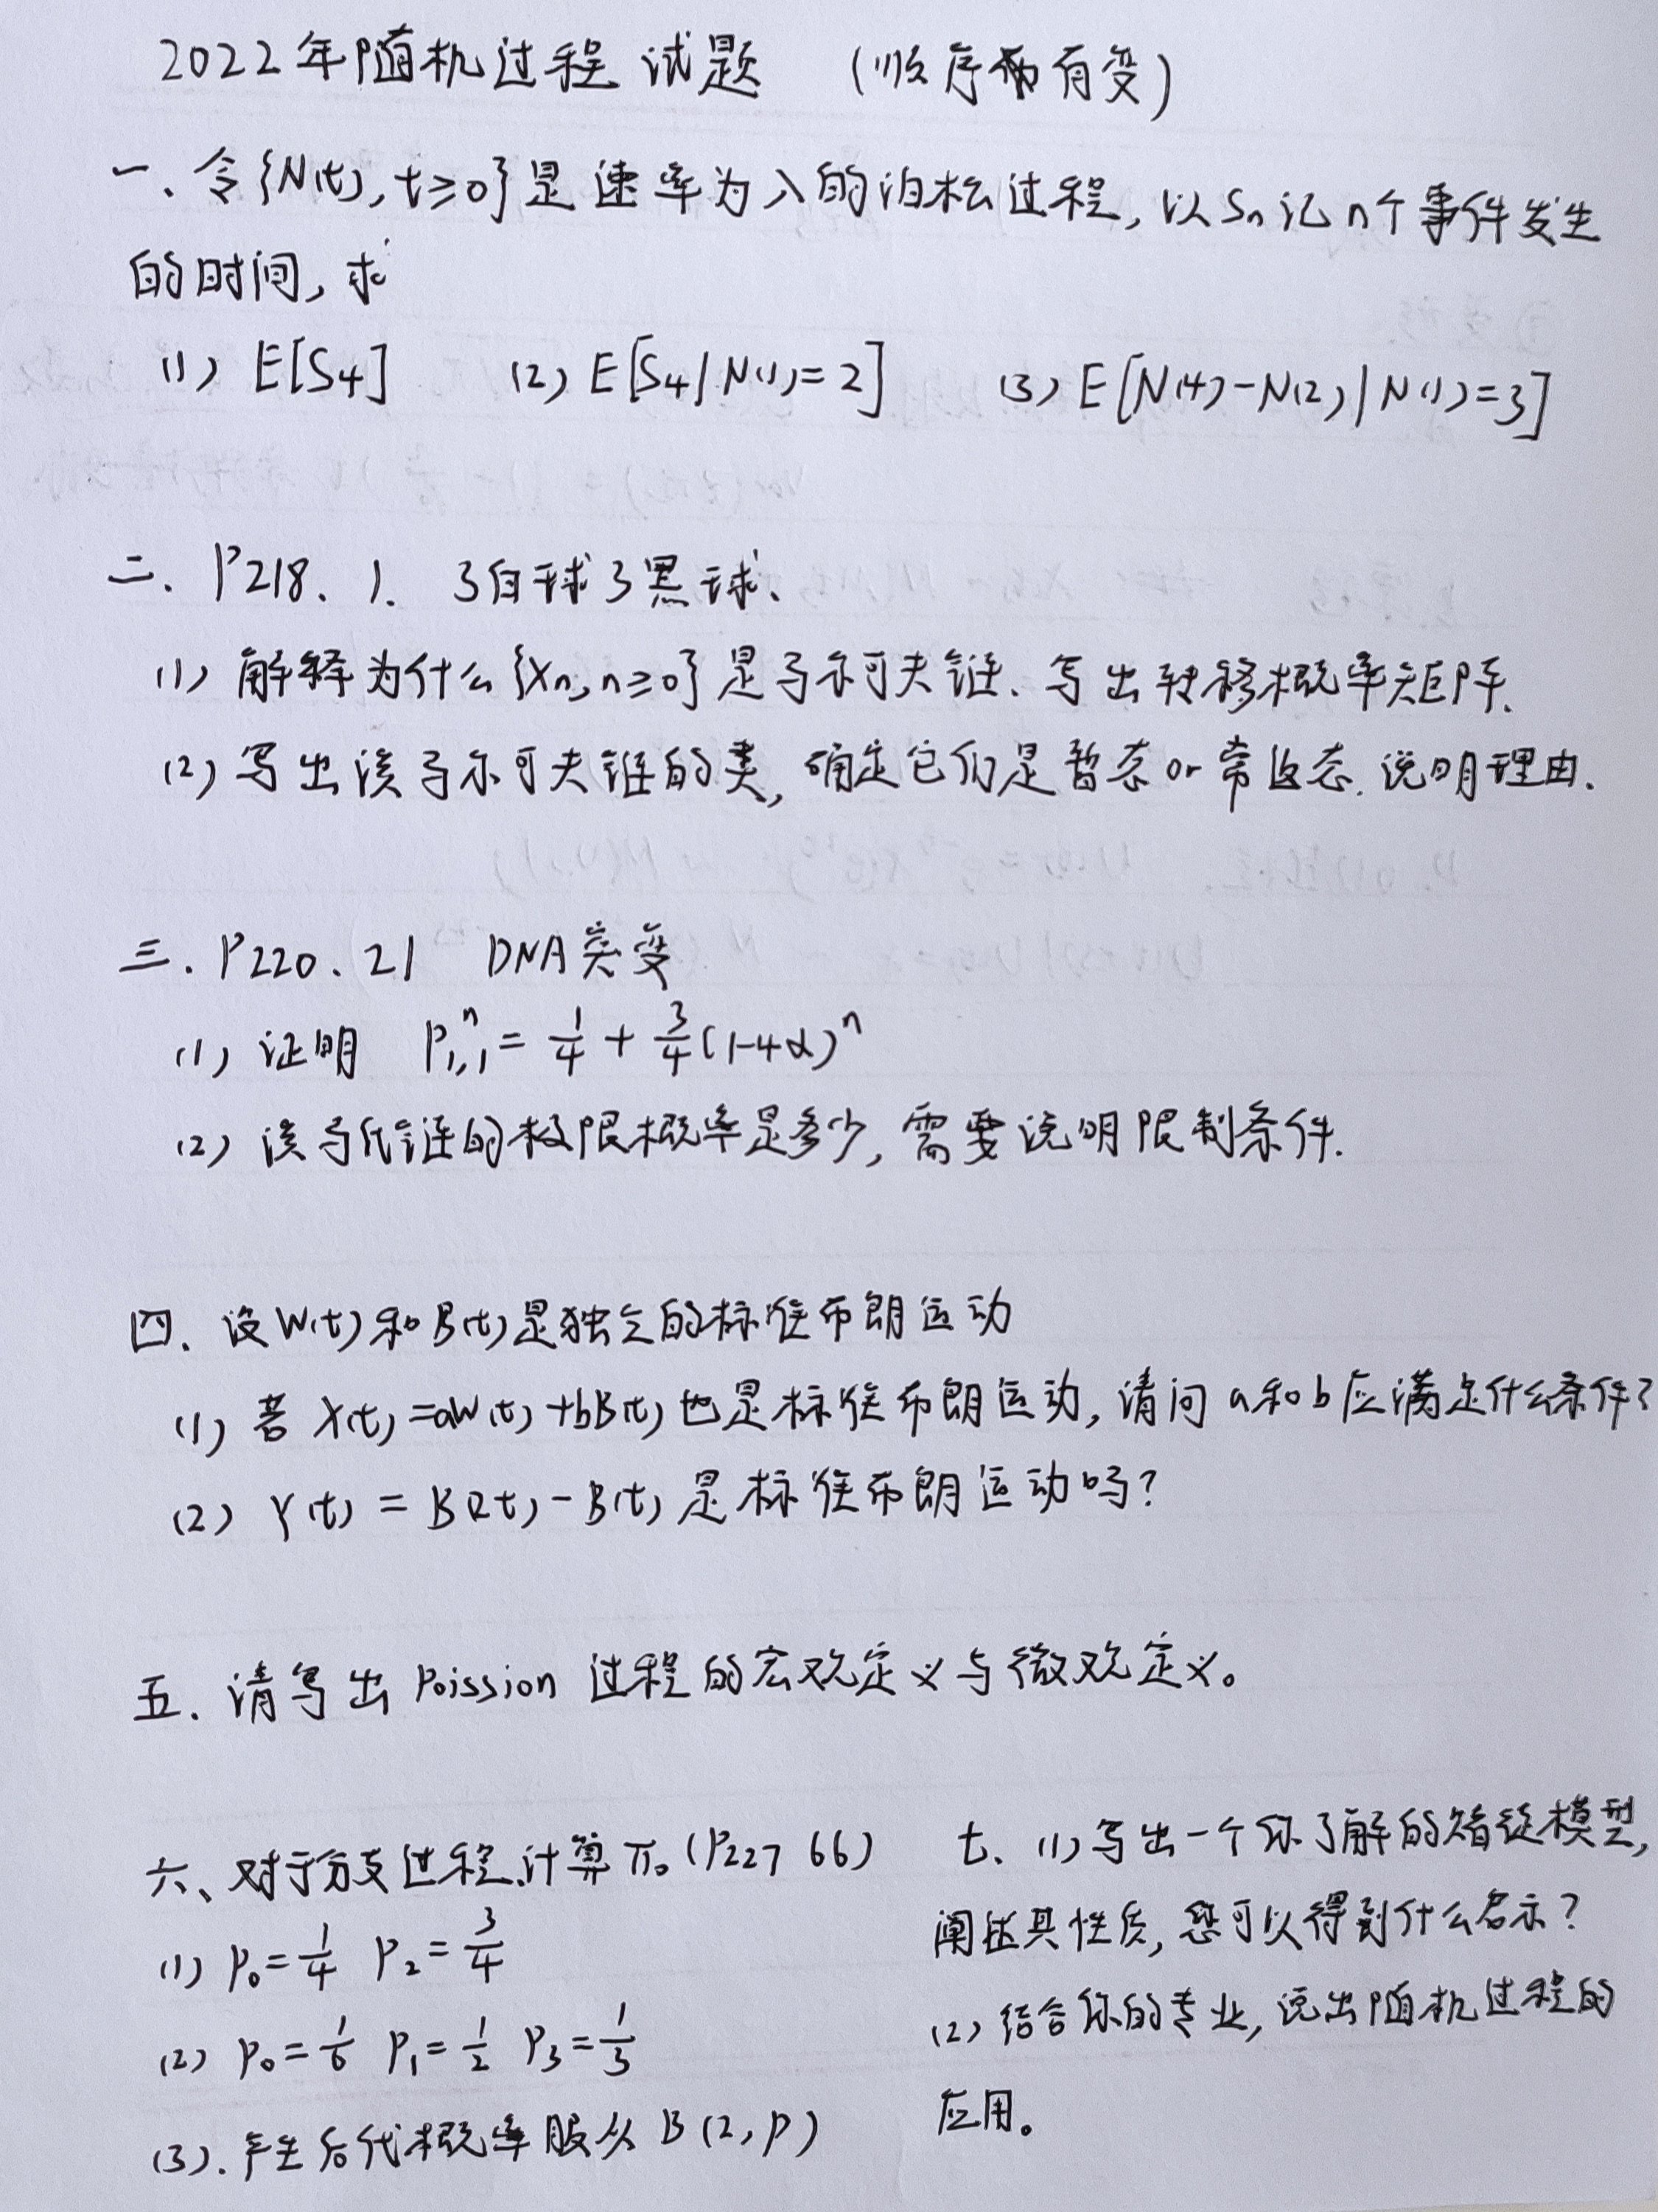 2022年随机过程 试题 (顺序有变)
一、令{N(t), t≥0}是速率为λ的泊松过程, 以Sn记n个事件发生
的时间, 求
(1) E[S4] (2) E[S4|N(1)=2] (3) E[N(4)-N(2)|N(1)=3]
二. P218. 1. 3白球3黑球.
(1) 解释为什么{Xn, n≥0}是马尔可夫链. 写出转移概率矩阵.
(2) 写出该马尔可夫链的类, 确定它们是暂态or常返态. 说明理由.
三. P220. 21 DNA突变
(1) 证明 P₁,₁ⁿ = 1/4 + 3/4(1-4α)ⁿ
(2) 该马氏链的极限概率是多少, 需要说明限制条件.
四. 设W(t)和B(t)是独立的标准布朗运动
(1) 若 X(t)=aW(t)+bB(t)也是标准布朗运动, 请问a和b应满足什么条件?
(2) Y(t) = B(2t)-B(t)是标准布朗运动吗?
五. 请写出 Poission 过程的宏观定义与微观定义。
六、对于分支过程.计算π₀ (P227 66)
(1) P₀=1/4 P₂=3/4
(2) P₀=1/6 P₁=1/2 P₃=1/3
(3). 产生后代概率服从 B(2, P)
七、(1)写出一个你了解的赌徒模型,
阐述其性质, 您可以得到什么启示?
(2) 结合你的专业, 说出随机过程的
应用。